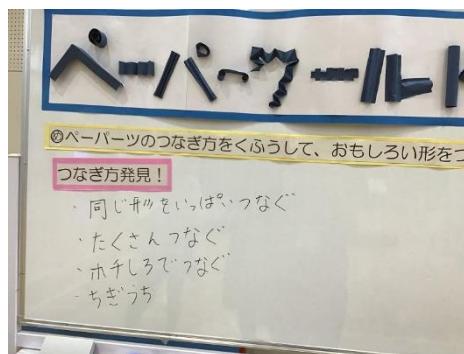 ペーパーワールド
めペーパーツのつなぎ方をくふうして、おもしろい形をつ
つなぎ方発見！
・同じ形をいっぱいつなぐ
・たくさんつなぐ
・ホチしろでつなぐ
・ちぎうち